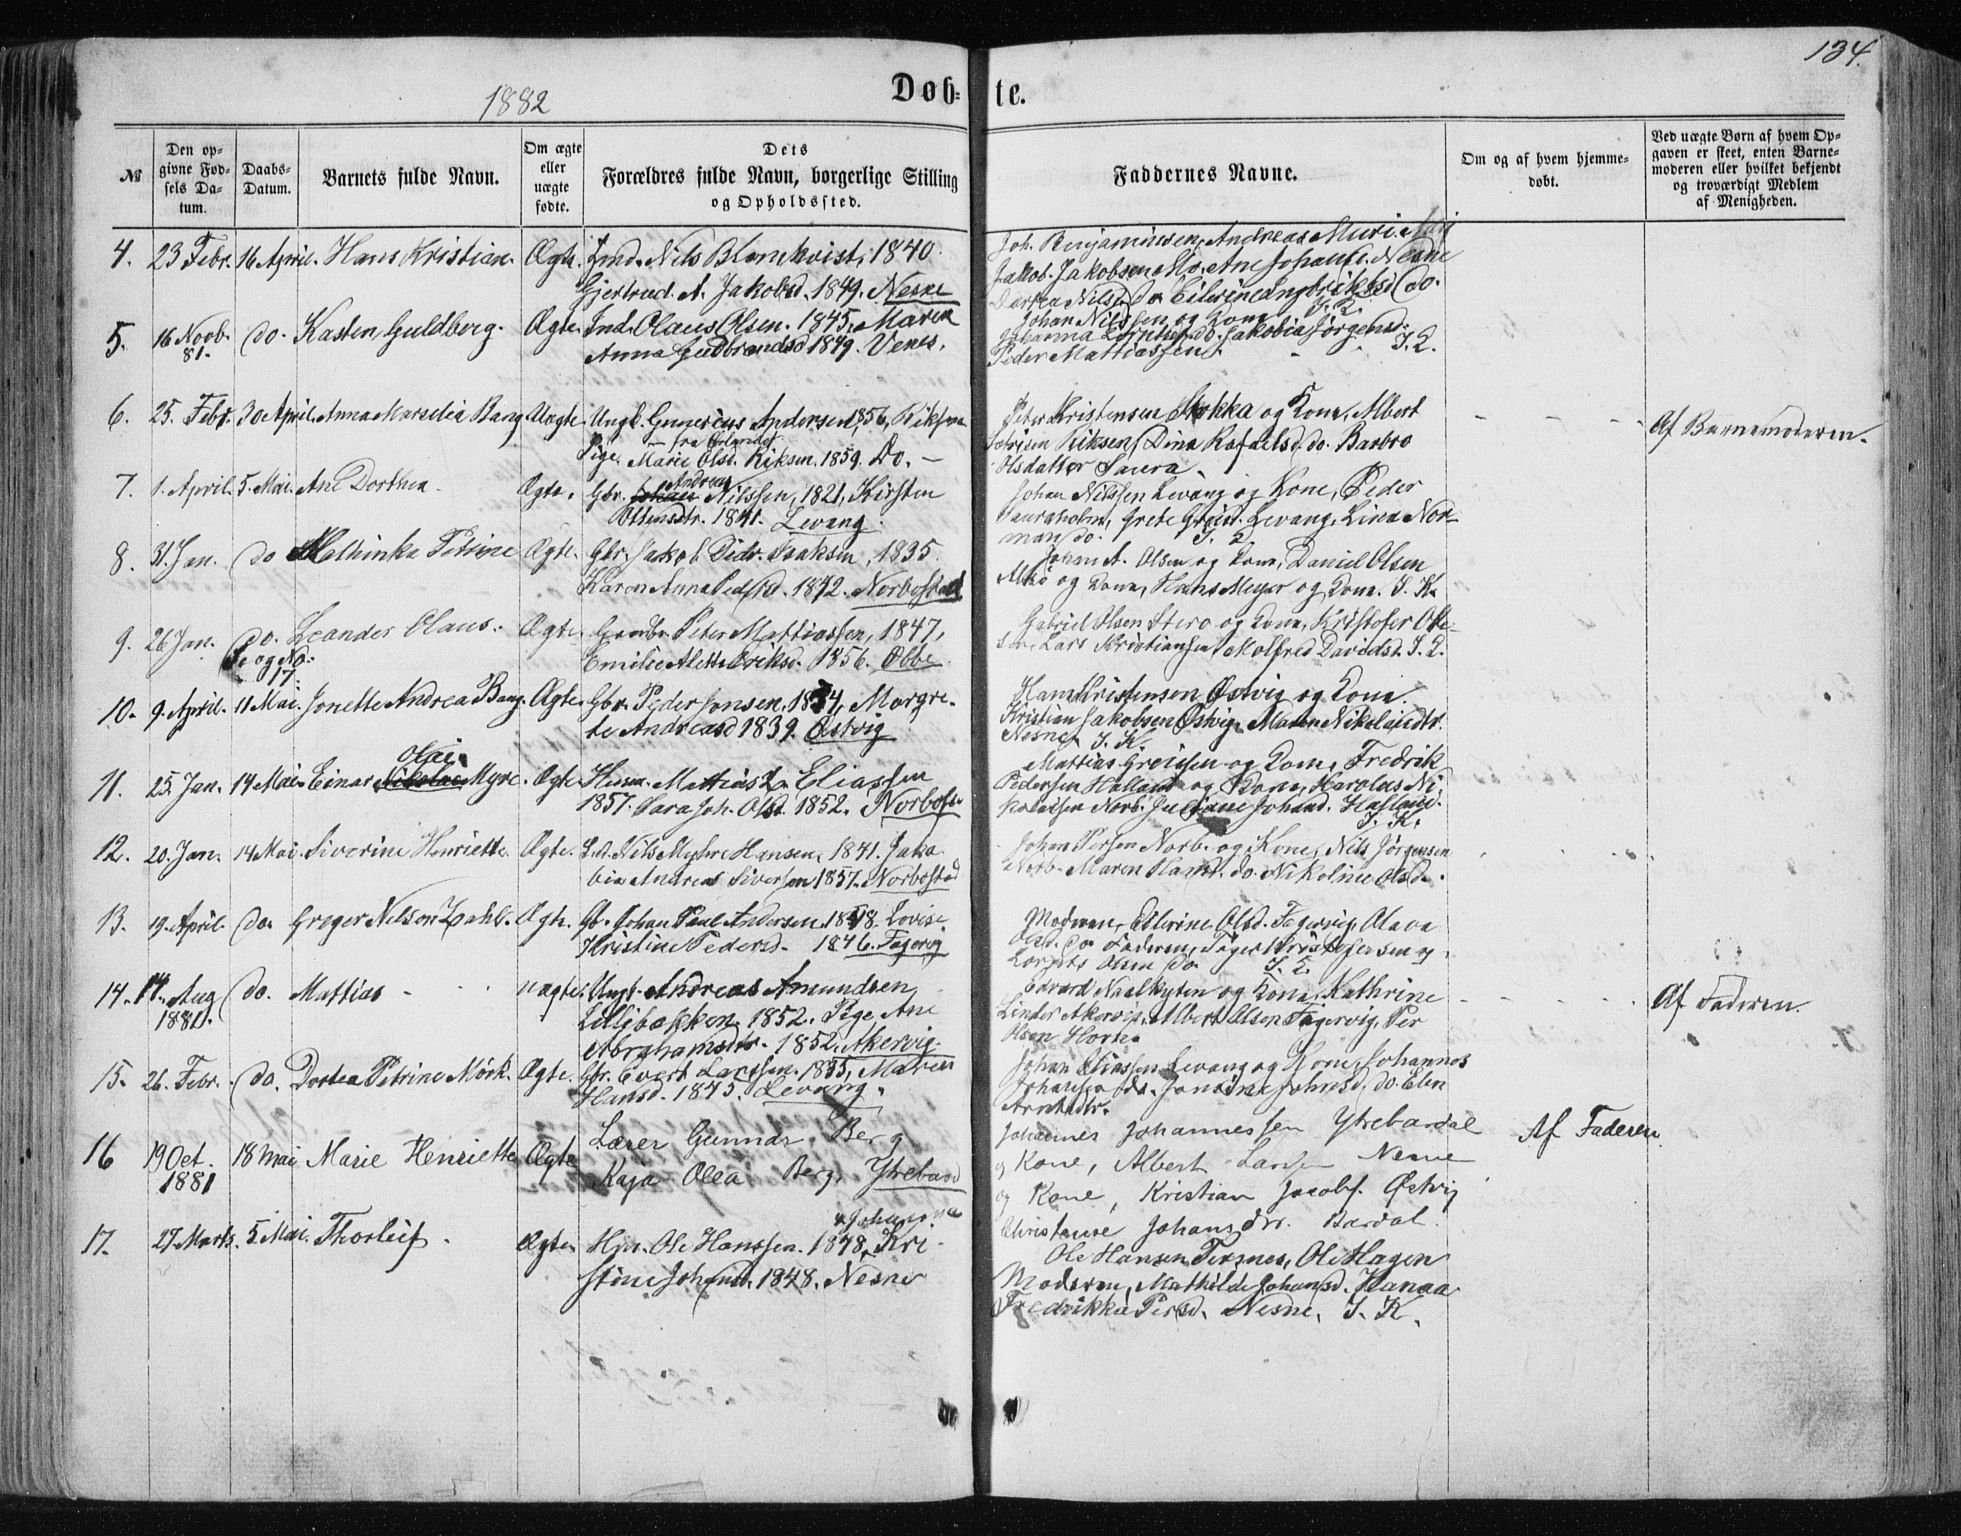 134.
1882
Døb-te.
№
Den op-
givne Fød-
sels Da-
tum.
Daabs-
Datum.
Barnets fulde Navn.
Om ægte
eller
uægte
fødte.
Dets
Forældres fulde Navn, borgerlige Stilling
og Opholdssted.
Faddernes Navne.
Om og af hvem hjemme-
døbt.
Ved uægte Børn af hvem Op-
gaven er skeet, enten Barne-
moderen eller hvilket bekjendt
og troværdigt Medlem
af Menigheden.
4. 23 Febr. 16 April. Hans Kristian. Ægte. Nils Blomkvist, 1840.
Gjertrud A. Jakobsd. 1849. Nesne
Joh. Benjaminsen, Andreas
Jakob Jakobsen Ane Johansd. Nesne
Nilsd. do
5. 16 Novb. 81. do. Kasten Guldberg. Ægte. Ind. Olaus Olsen. 1845, Maren
Anna Gudbrandsd 1849. Venes.
Johan Nilssen og Kone
Johanna do. Jakobia Jørgensd.
Peder Mattiassen
6. 25. Febr. 30 April. Anna Marselia Bang Uægte. Ungk. Gunerius Andersen, 1856,
Pige Marie Olsd. Riksen. 1859. Do. —
Peter Kristensen Stokka og Kone, Albert
Riksen, Dina Rafaelsd. do. Barbro
Olsdatter Saura.
Af Barnemoderen.
7. 1. April. 5. Mai. Ane Dorthea. Ægte. Gbr. Andreas Nilssen, 1821, Kirsten
1841. Levang.
Johan Nilssen Levang og Kone, Peder
Sauraholm, Grete Levang, Lina Nor-
man do.
8. 31 Jan. do Mathinka Petrine Ægte. Gbr. Jakob Isaksen, 1835
Karen Anna Pedersd. 1842. Norbostad
Johan A. Olsen og Kone, Daniel Olsen
og Kone, Hans Meyer og Kone. I. K.
9. 26 Jan. do. Leander Olaus. Ægte. Peter Mattiassen, 1847,
Emilie Alette Eriksd. 1856.
Se og No.
17.
Gabriel Olsen og Kone, Kristofer Ole-
sen, Lars Kristiansen, Davidsd.
10. 9. April. 11 Mai. Jonette Andrea Bang. Ægte. Gbr. Peder Jonsen, 1834, Margre-
te Andreasd 1839. Østvig
Hans Kristensen Østvig og Kone.
Kristian Jakobsen Østvig. Maren Nikolaidtr.
Nesne. I. K.
Olai
11. 25. Jan. 14 Mai. Einar Nikolai Myre. Ægte Husm. Mattias Eliassen
1857. Sara Joh. Olsd. 1852. Norbost
Mattias Greisen og Kone, Fredrik
Pedersen Halland og Kone, Harolus Ni-
kolaisen Norb. Juliane Johansd. Halland.
I. K.
12. 20. Jan. 14 Mai. Siverine Henriette. Ægte. Nils Myhre Hansen, 1841. Jako-
bia Andrea Siversen 1857. Norbostad
Johan Persen Norb. og Kone, Nils Jørgensen
Norb. Maren Hansd. do. Nikoline Olsd.
13. 19. April. do. Greger Nilson Zahl. Ægte. Gbr. Johan Paul Andersen. 1848. Lovise
Kristine Pedersd. 1846. Fagervig
Moderen, Elerine Olsd. Fagervig, Olava
Olsd. do. Faderen, Kristofersen og
Olsen do.
14. 14. Aug 1881. do. Mattias uægte. Ungk. Andreas Amundsen
Lillebakken. 1852. Pige Ane
Abrahamsdtr. 1852. Akervig.
Edvard Naalkyten og Kone, Kathrine
Linder Akervig, Albert Olsen Fagervig, Per
Olsen
Af Faderen.
15. 26. Febr. do. Dortea Petrine Mørk. Ægte. Gbr. Evert Larssen. 1835, Maren
Hansd. 1845. Levang.
Johan Eliassen Levang og Kone, Johannes
Johansen do. Jonsine Johnsd. do. Elen
Arntsdtr.
16 19 Oct. 1881 18 Mai Marie Henriette Ægte Lærer Gunnar Berg
Kaja Olea Berg, Ytrebard
Johannes Johannessen Ytrebardal
og Kone, Albert Larsen Nesne
og Kone, Kristian Jacobs. Østvig
Christense Johansdtr. Bardal.
Af Faderen.
17. 27 Marts. 5. Mai. Thorleif. Ægte. Ole Hanssen. 1848, Kri-
& Johanna
stine Johansd. 1848. Nesne
Ole Hansen Ternes, Ole Hagen
Moderen, Mathilde Johansd. Hanaa
Fredrikka Persd. Nesne. I. K.